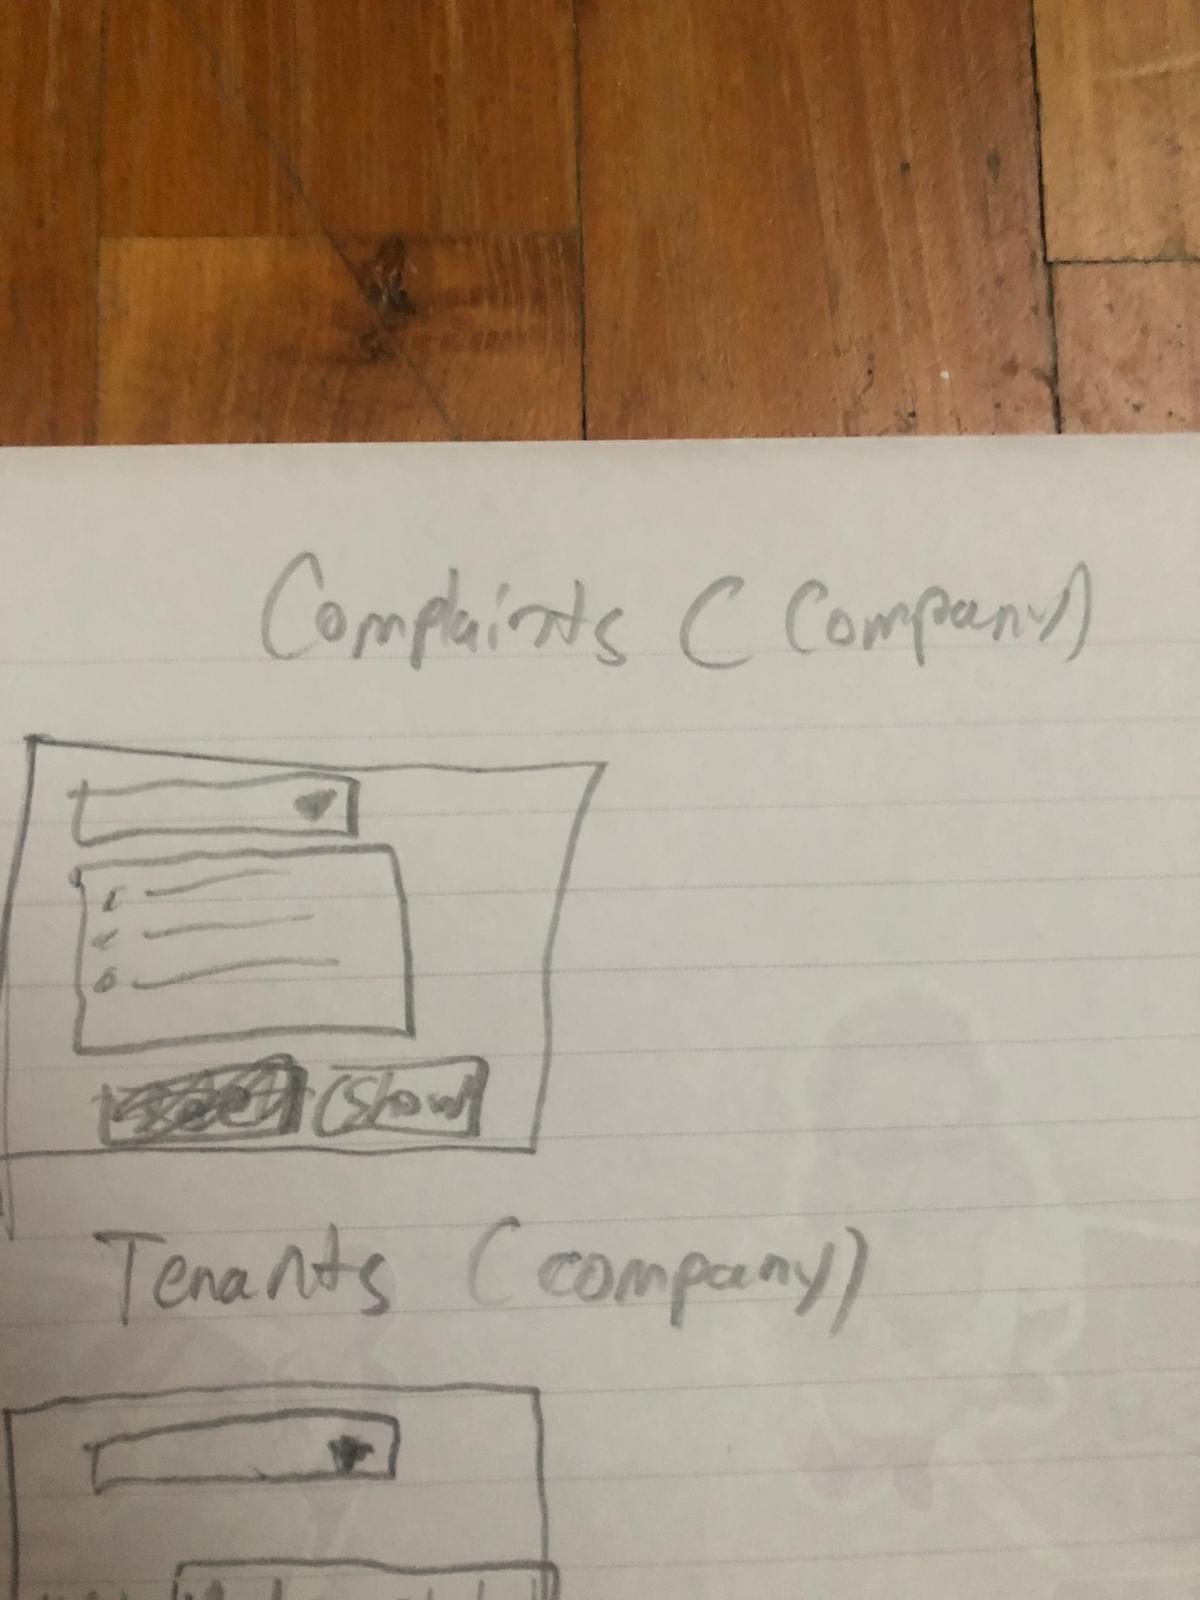 Complaints ( Company)
(Show)
Tenants (company)